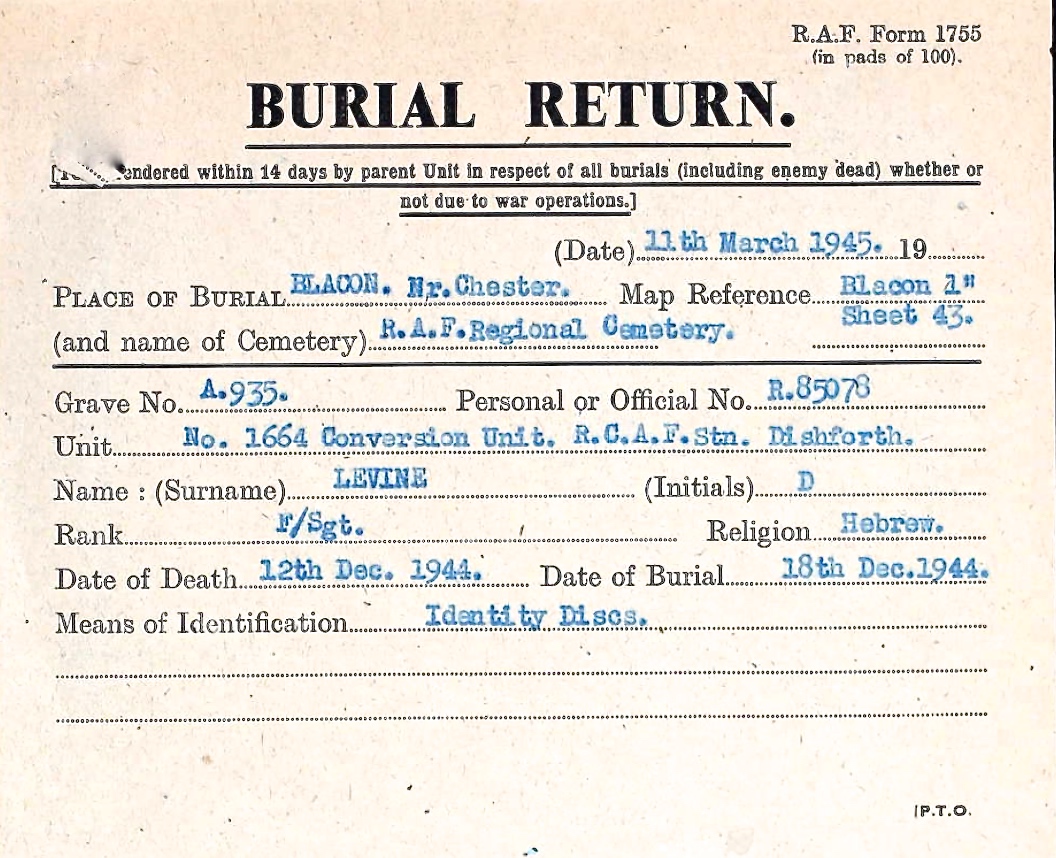 R.A.F. Form 1755
(in pads of 100).
BURIAL RETURN.
endered within 14 days by parent Unit in respect of all burials (including enemy dead) whether or
not due to war operations.]
(Date) 11th March 1945. 19
PLACE OF BURIAL BLACON. Nr.Chester. Map Reference Blacon 1"
Sheet 43.
(and name of Cemetery) R.A.F.Regional Cemetery.
Grave No. A.935. Personal or Official No. R.85078
Unit No. 1664 Conversion Unit. R.C.A.F.Stn. Dishforth.
Name : (Surname) LEVINE (Initials) D
Rank F/Sgt. Religion Hebrew.
Date of Death 12th Dec. 1944. Date of Burial 18th Dec.1944.
Means of Identification Identity Discs.
[P.T.O.